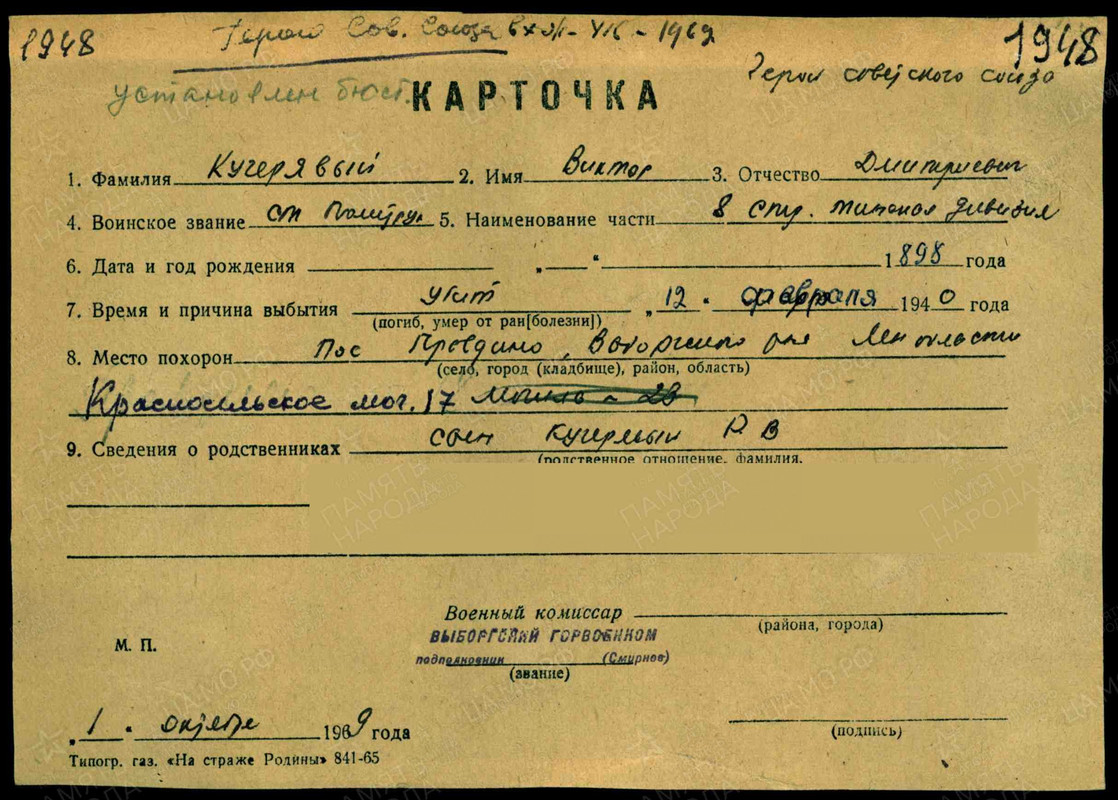 1948 Герой Сов. Союза вх УК - 1962 1948
Герой советского союза
установлен бюст.
КАРТОЧКА
1. Фамилия Кучерявый 2. Имя Виктор 3. Отчество Дмитриевич
4. Воинское звание ст политрук 5. Наименование части 8 стр. дивизия
6. Дата и год рождения „ “ 1898 года
7. Время и причина выбытия убит „12 “ февраля 1940 года
(погиб, умер от ран[болезни])
8. Место похорон пос Правдино, Выборгского р-на Лен области
(село, город (кладбище), район, область)
Красносельское мог. 17
9. Сведения о родственниках сын Кучерявый В
(родственное отношение, фамилия,
Военный комиссар
(района, города)
ВЫБОРГСКИЙ ГОРВОЕНКОМ
М. П.
подполковник (Смирнов)
(звание)
„ 1 “ октября 1969 года
(подпись)
Типогр. газ. «На страже Родины» 841-65